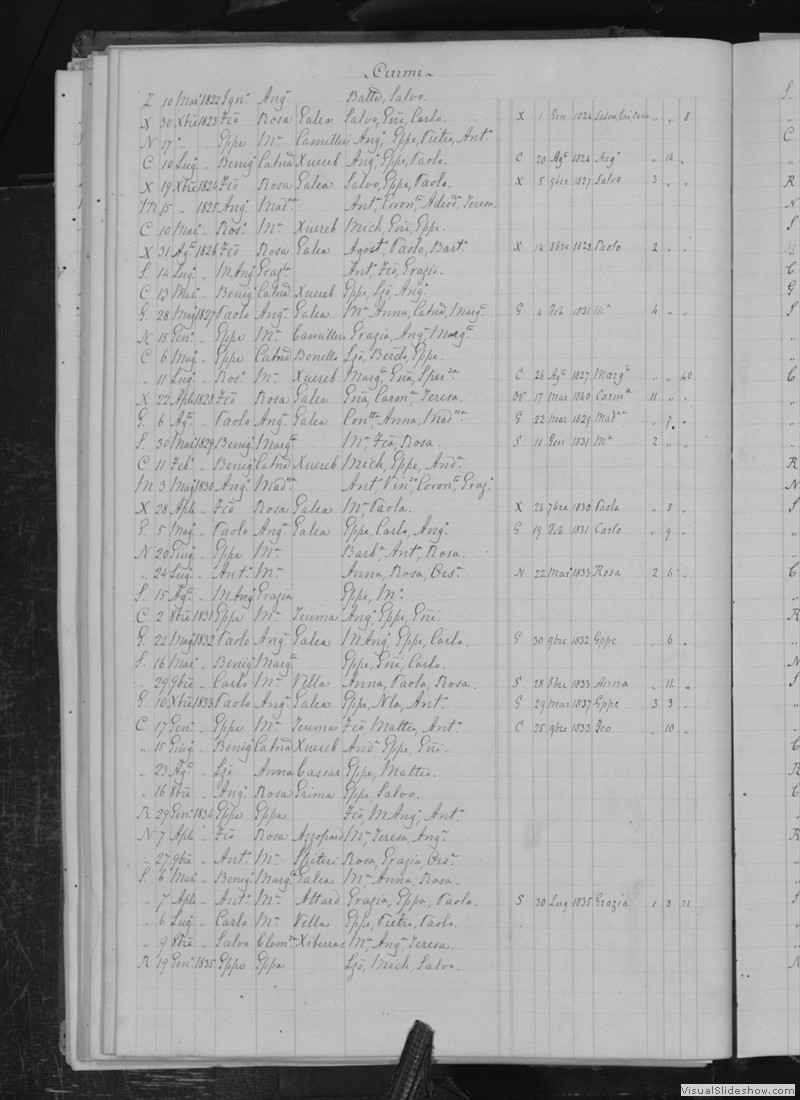 Curmi
Z 10 Mar. 1822 Ign. Ang. Batta, Salvo.
X 30 Xbre 1823 Fco Rosa Galea Salvo, Eni, Carlo. X 1 Gen 1824 Salvo, Eni, Carlo " " 8
N 17 " " Gppe Ma Camilleri Ang. Gppe, Pietro, Ant.
C 10 Lug. " Benig Catna Xuereb Ang. Gppe, Paolo. C 20 Ag. 1824 Ang. " 14 "
X 19 Xbre 1824 Fco Rosa Galea Salvo, Gppe, Paolo. X 5 9bre 1827 Salvo 3 " "
M 15 " 1825 Ang. Mad.na Ant. Coron. Adeod. Teresa.
C 10 Mar. " Ros. Ma Xuereb Mich, Eni, Gppe.
X 31 Ag. 1826 Fco Rosa Galea Agost, Paolo, Bart. X 14 8bre 1828 Paolo 2 " "
S. 14 Lug. " MAng. Grazia Ant. Fco, Grazio.
C 12 Mar. " Benig. Catna Xuereb Gppe, Ljo, Ang.
G. 28 Mag 1827 Paolo Ang. Galea Ma Anna, Catna, Marg. G 4 Feb 1831 Ma 4 " "
N 15 Gen. " Gppe Ma Camilleri Grazia, Ang. Marg.
C 6 Mag. " Gppe Catna Bonello Ljo, Berdo, Gppe.
" 11 Lug. " Ros. Ma Xuereb Marg. Ena, Sper.za C 26 Ag. 1827 Marg. " " 40
X 22 Aple 1828 Fco Rosa Galea Ena, Carm. Teresa. 17 Mar 1840 Carm.a 11 " "
G. 6 Ag. " Paolo Ang. Galea Con.tta, Anna, Mad.na G 22 Mar 1829 Mad.na " 7 "
S. 30 Mar 1829 Benig. Marg. Ma, Fca, Rosa. S 11 Gen 1831 Ma 2 " "
C 11 Feb. " Benig. Catna Xuereb Mich, Gppe, And.
M 3 Mag 1830 Ang. Mad.na Ant, Vin. Coron. Graz.
X 28 Aple " Fco Rosa Galea Ma, Paola. X 24 7bre 1830 Paola " 5 "
G. 5 Mag. " Paolo Ang. Galea Gppe, Carlo, Ang. G 19 Feb 1831 Carlo " 9 "
N 20 Giug. " Gppe Ma Barb. Ant, Rosa.
" 24 Lug. " Ant. Ma Anna, Rosa, Ors. N 22 Mar 1833 Rosa 2 6 "
S. 15 Ag. " MAng Grazia Gppe, Ma.
C 2 8bre 1831 Gppe Ma Teuma Ang. Gppe, Eni.
G. 22 Mag 1832 Paolo Ang. Galea MAng. Gppe, Carlo. G 30 9bre 1832 Gppe " 6 "
S. 16 Mar. " Benig. Marg. Gppe, Eni, Carlo.
" 29 9bre " Carlo Ma Vella Anna, Paola, Rosa. S 28 8bre 1833 Anna " 11 "
G 10 Xbre 1833 Paolo Ang. Galea Gppe, Nla, Ant. G 29 Mar 1837 Gppe 3 3 "
C 17 Gen. " Gppe Ma Teuma Fco, Matteo, Ant. C 25 9bre 1833 Fco " 10 "
" 15 Giug. " Benig. Catna Xuereb And. Gppe, Eni.
" 23 Ag. " Ljo Anna Cassar Gppe, Matteo.
" 16 8bre " Ang. Rosa Grima Gppe Salvo.
R 29 Gen. 1834 Gppe Gppa Fco, MAng. Ant.
N 7 Aple " Fco Rosa Azzopard Ma, Teresa, Ang.
" 27 9bre " Ant. Ma Spiteri Rosa, Grazia, Ors.
S. 6 Mar. " Benig. Marg. Galea Ma Anna, Rosa.
" 7 Aple " Ant. Ma Attard Grazia, Gppa, Paola. S 30 Lug 1835 Grazia 1 3 21
" 6 Lug. " Carlo Ma Vella Gppe, Pietro, Paolo.
" 9 8bre " Salvo Clem.za Xiberras Ma, Ang. Teresa.
R 19 Gen. 1835 Gppe Gppa Ljo, Mich, Salvo.
VisualSlideshow.com